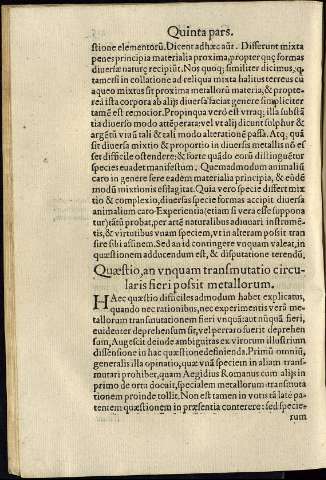 Quinta pars.
stione elementorū. Dicent adhæc aūt. Differunt mixta
penes principia materialia proxima, propter quę formas
diuersæ naturę recipiūt. Nos quoq; similiter dicimus, q̃
tamersi in collatione ad reliqua mixta halitus terreus cū
aqueo mixtus sit proxima metallorū materia, & propte-
rea ista corpora ab alijs diuersa faciat genere simpliciter
tamē est remotior. Propinqua verò est vtraq; illa substā
tia diuerso modo attēperata: vel vt alij dicūt sulphur &
argētū viuū tali & tali modo alterationē passa. Atq, quā
sit diuersa mixtio & proportio in diuersis metallis nō es
set difficile ostendere; & forte quādo eorū distinguētur
species euadet manifestum. Quemadmodum animaliū
caro in genere fere eadem materialia principia, & eūdē
modū mixtionis efflagitat. Quia vero specie differt mix
tio & complexio, diuersas specie formas accipit diuersa
animalium caro. Experientia (etiam si vera esse suppona
tur) tātū probat, per artē naturalibus adiuuari instrumē-
tis, & virtutibus vnam speciem, vt in alteram possit tran
sire sibi affinem. Sed an id contingere vnquam valeat, in
quæstionem adducendum est, & disputatione terendū.
Quæstio, an vnquam transmutatio circu-
laris fieri possit metallorum.
HAec quæstio difficiles admodum habet explicatus,
quando nec rationibus, nec experimentis verū me-
tallorum transmutationem fieri vnquā: aut nūquā fieri,
euidenter deprehensum sit, vel perraro fuerit deprehen
sum, Augescit deinde ambiguitas ex virorum illustrium
dissensione in hac quæstione definienda. Primū omniū,
generalis illa opinatio, quæ vnā speciem in aliam trans-
mutari prohibet, quam Aegidius Romanus cum alijs in
primo de ortu docuit, specialem metallorum transmuta
tationem proinde tollit. Non est tamen in votis tā late pa-
tentem quæstionem in præsentia conterere: sed specie-
rum